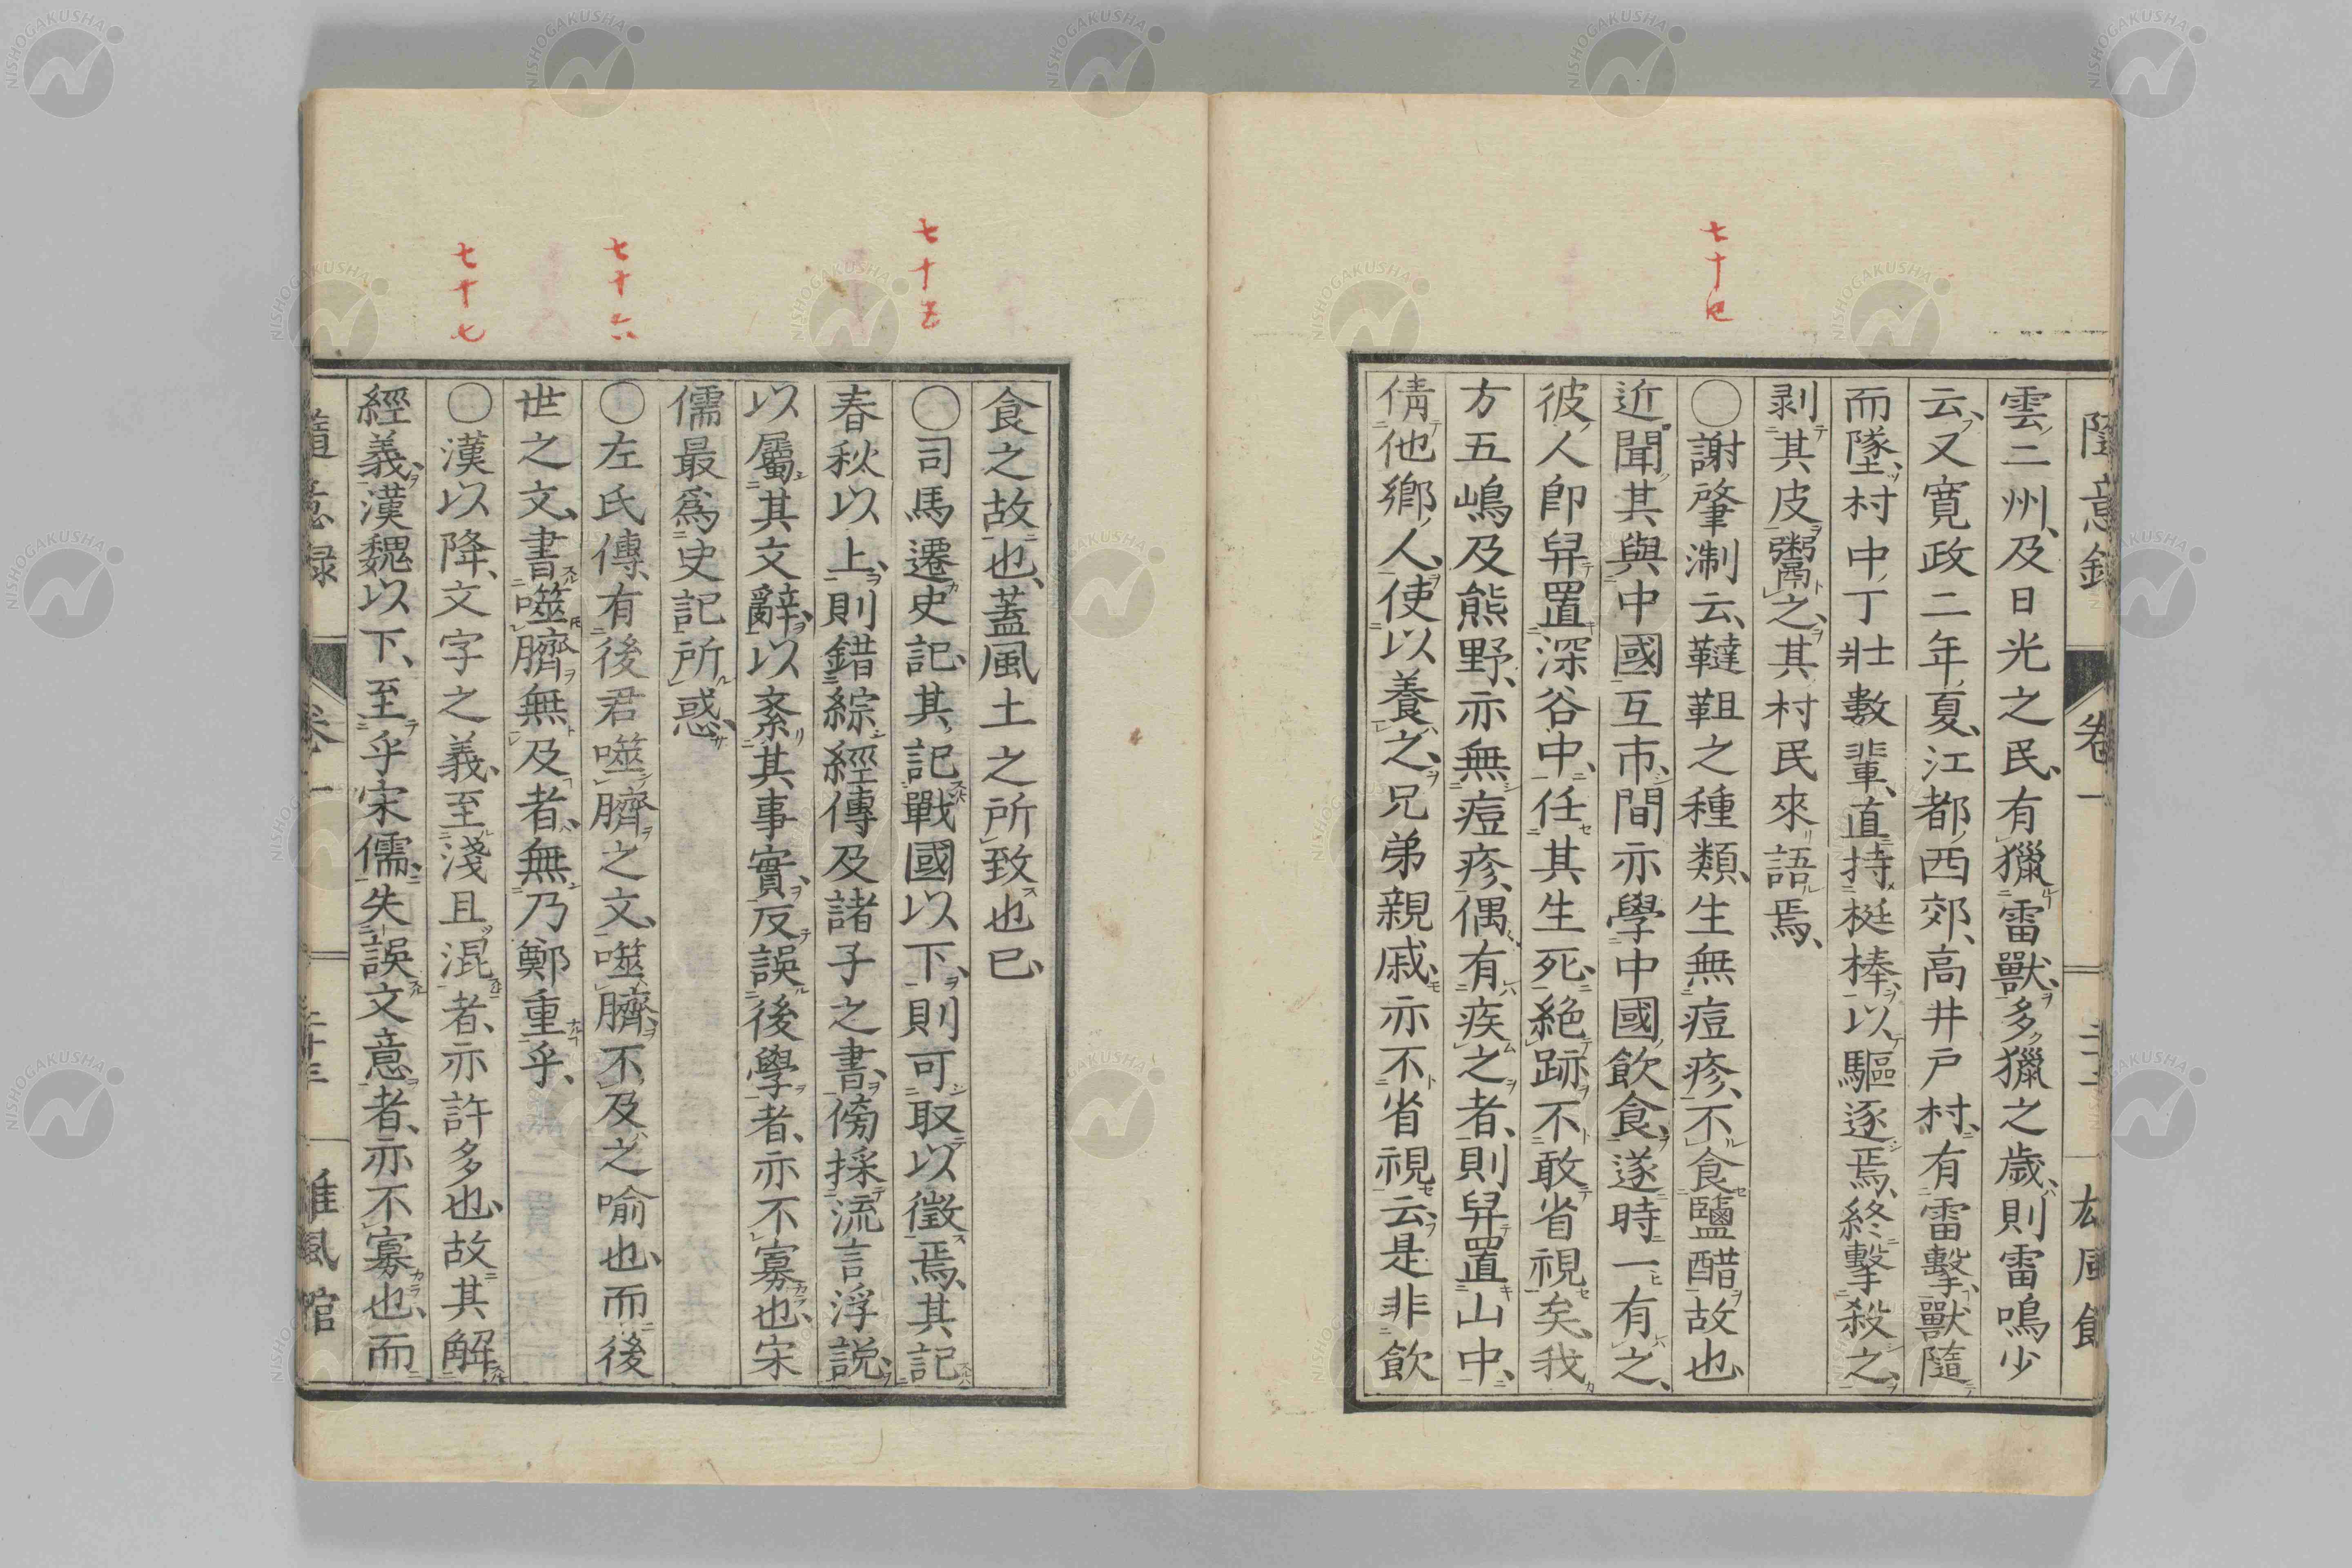 七十四
雲二州、及日光之民、有獵雷獸、多獵之歲、則雷鳴少
云、又寬政二年、夏、江都西郊、高井戸村、有雷擊、獸隨
而墜、村中丁壯數輩、直持梃棒、以驅逐焉、終擊殺之、
剥其皮鬻之、其村民來語焉、
〇謝肇淛云、韃靼之種類、生無痘疹、不食鹽醋故也、
近聞其與中國互市、間亦學中國飲食、遂時一有之、
彼人卽舁置深谷中、任其生死、絶跡不敢省視矣、我
方五嶋及熊野、亦無痘疹、偶有疾之者、則舁置山中、
倩他鄉人、使以養之、兄弟親戚、亦不省視云、是非飲
七十五
七十六
七十七
食之故也、蓋風土之所致也已、
〇司馬遷史記、其記戰國以下、則可取以徵焉、其記
春秋以上、則錯綜經傳及諸子之書、傍採流言浮説、
以屬其文辭、以紊其事實、反誤後學者、亦不寡也、宋
儒最爲史記所惑、
〇左氏傳、有後君噬臍之文、噬臍不及之喻也、而後
世之文、書噬臍無及者、無乃鄭重乎、
〇漢以降、文字之義、至淺且混者、亦許多也、故其解
經義、漢魏以下、至乎宋儒、失誤文意者、亦不寡也、而
隨意錄 卷一 雄風館